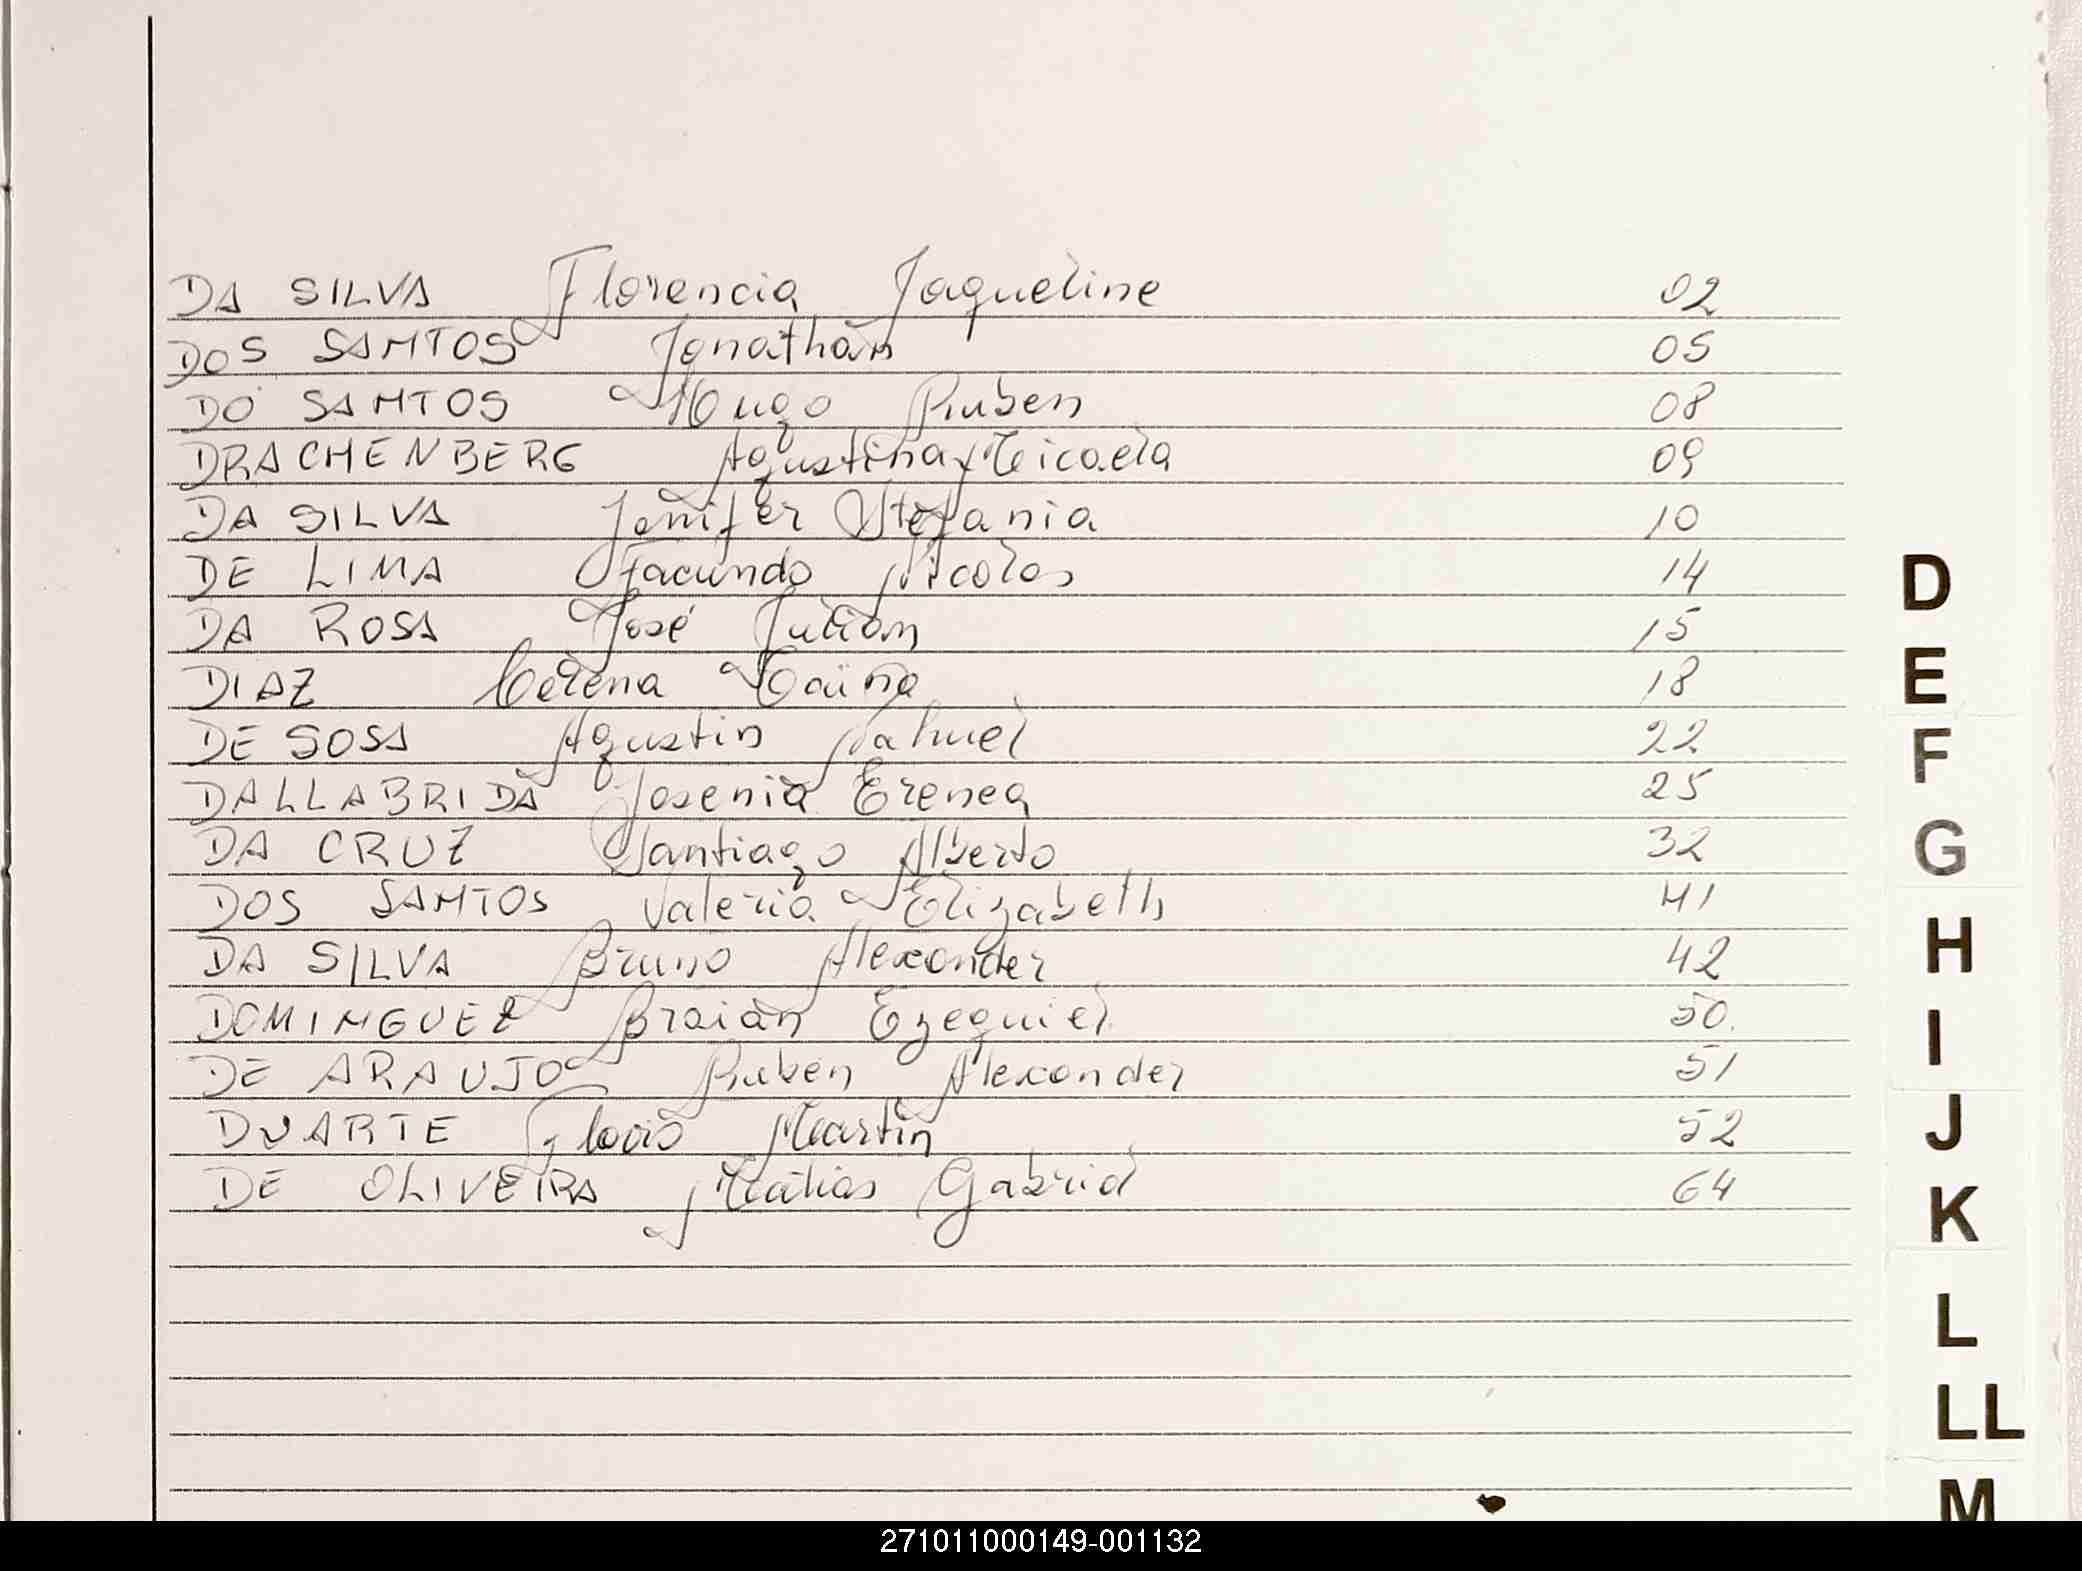 DA SILVA Florencia Jaqueline 02
DOS SANTOS Jonathan 05
DO SANTOS Hugo Ruben 08
DRACHENBERG Agustina Micaela 09
DA SILVA Jenifer Stefania 10
DE LIMA Facundo Nicolas 14
DA ROSA José Julian 15
DIAZ Celena 18
DE SOSA Agustin Nahuel 22
DALLABRIDA Josenia Erenea 25
DA CRUZ Santiago Alberto 32
DOS SANTOS Valeria Elizabeth 41
DA SILVA Bruno Alexander 42
DOMINGUEZ Braian Ezequiel 50
DE ARAUJO Ruben Alexander 51
DUARTE Flavio Martin 52
DE OLIVEIRA Matias Gabriel 64
D
E
F
G
H
I
J
K
L
LL
M
271011000149-001132